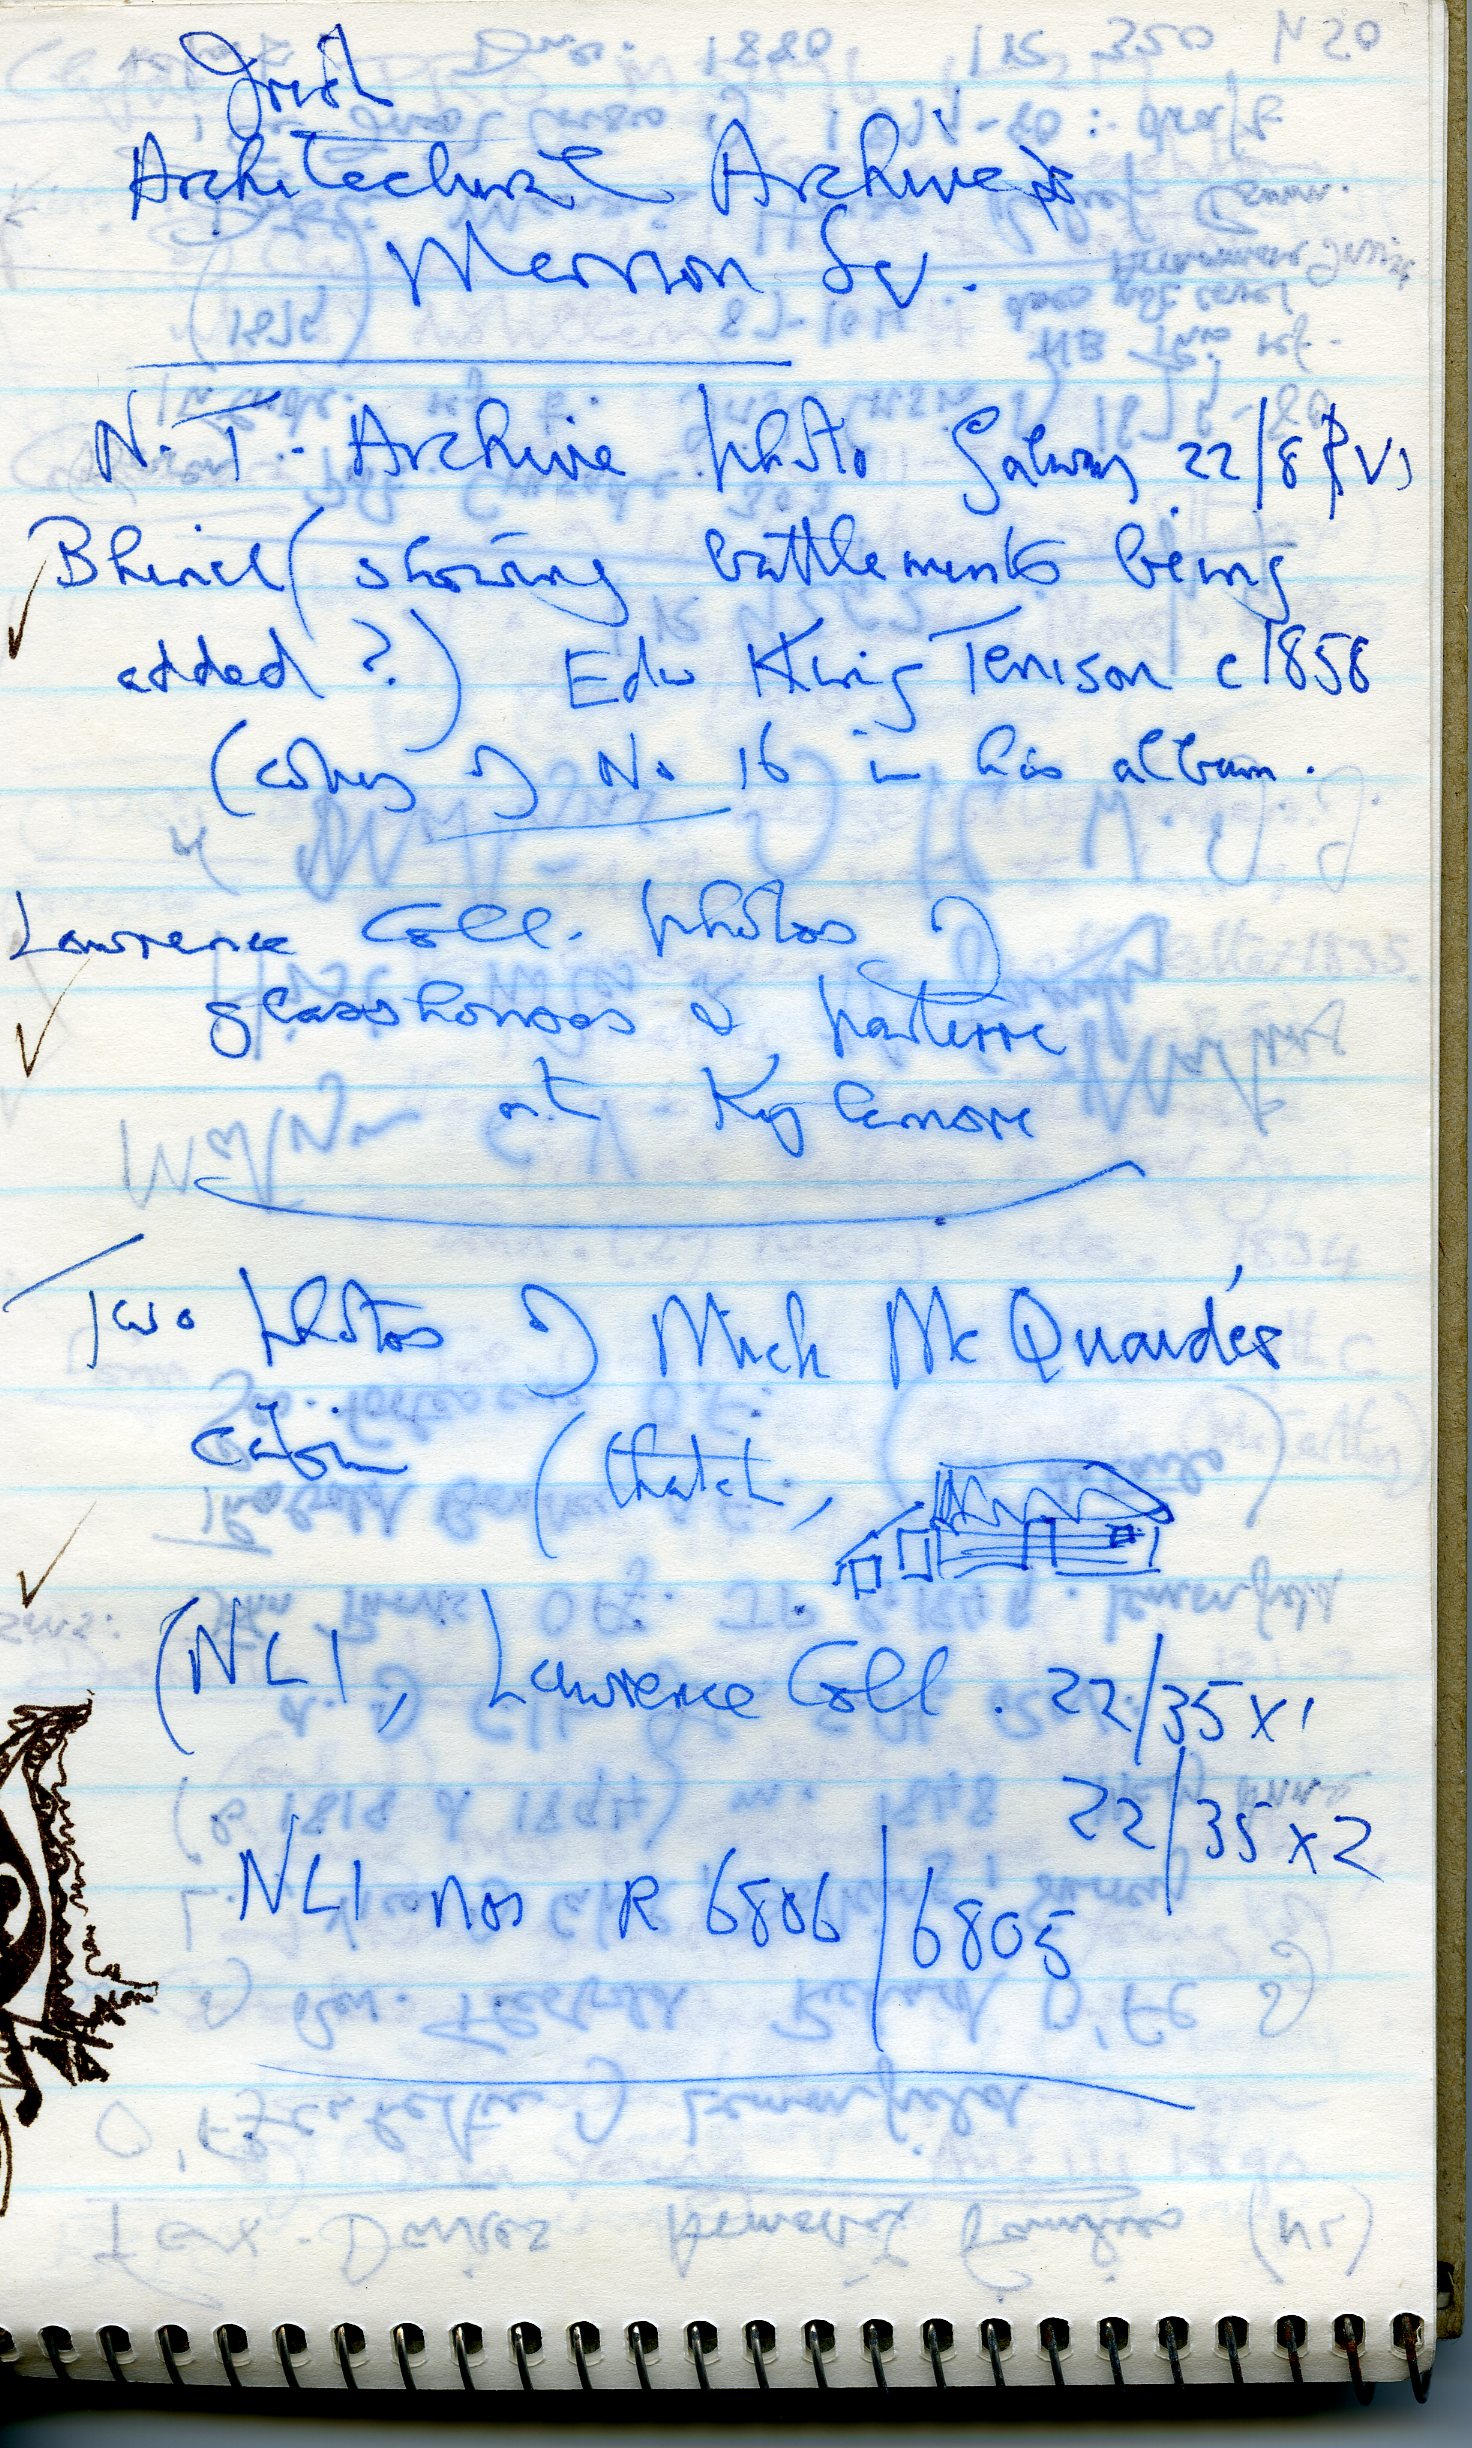 Irish
Architectural Archive
Merrion Sq.
N.T. Archive photo Galway 22/8
(showing battlements being
added?) Edw King Tenison c1858
(copy of No 16 in his album.
Lawrence Coll. photos of
glasshouses & parterre
at Kylemore
Two photos of Mick McQuaid's
cabin (thatch,
(NLI, Lawrence Coll. 22/35 x1
22/35 x2
NLI nos R 6806/6805